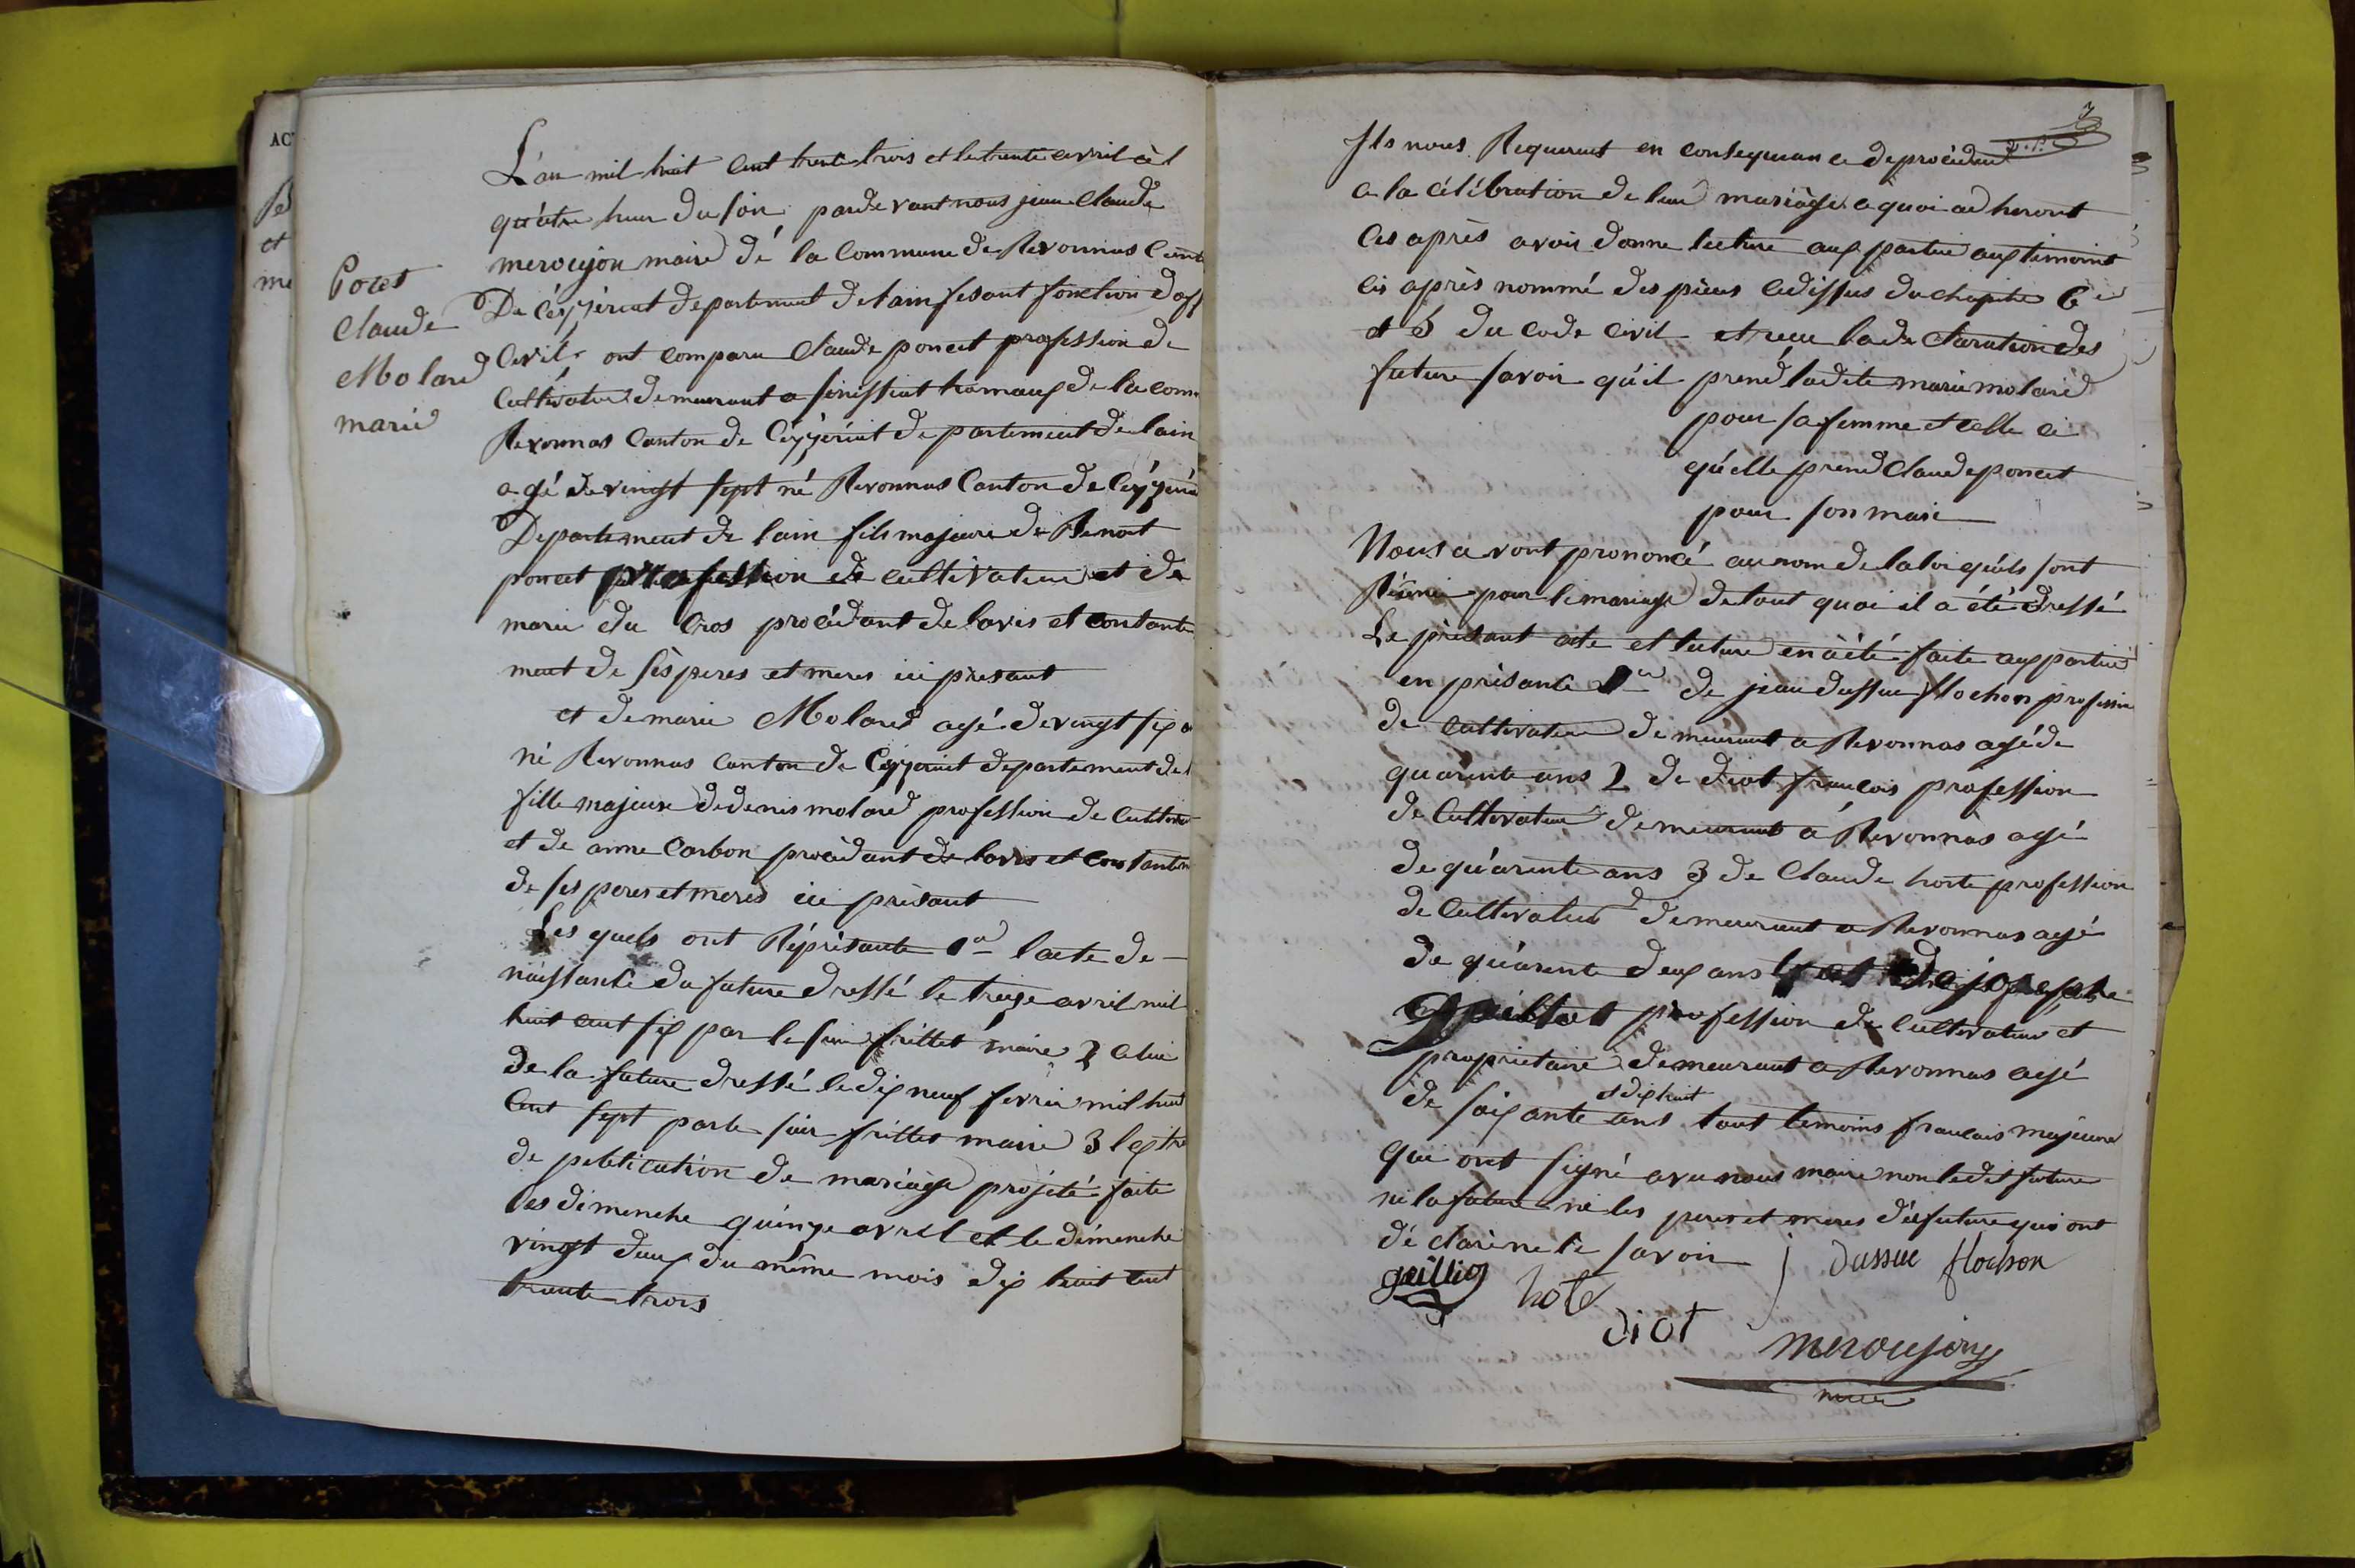 AC
et
me
Pocet
Claude
Molard
marie
L'an mil huit cent trente trois et le trente avril à
quatre heur du soir pardevant nous jean Claude
meroujon maire dé la Commune de Revonnas Cant
De Ceyzériat departement de lain fesant fonction d'off
Civil ont comparu Claude poncet profession de
Cultivateur demeurant a hamaux de la com
Revonnas Canton de Ceyzériat departement de lain
agé de vingt sept né Revonnas Canton de Ceyzéria
Departement de lain fils majeure de Benoit
poncet profession de cultivateur et de
marie du Cros procédant de lavis et contante
ment de ses peres et meres ici présant
et de marie Molard agé de vingt six a
né Revonnas canton de Ceyzeriat departement de l
fille majeure de denis molard profession de Cultivat
et de anne Carbon procédant de lavis et Contantem
de ses peres et meres ici présant
Les quels ont Réprésante 1er lacte de
naissance du future dressé le treize avril mil
huit cent six par le sieur frillet maire 2 celui
de la future dressé le dix neuf fevrier mil huit
Cent sept par le sieur frillet maire 3 lextre
de publication de mariage projeté faite
les dimenche quinze avril et le dimenche
vingt deux du même mois dix huit cent
trante trois
Ils nous Requerent en consequance de procéder
a la célébration de leur mariage a quoi adheront
Ces après avoir donne lecture aux partie aux temoins
cis après nommé des pieces cidissus du chapitre 6
et 5 du code civil et recu la déclaration des
future savoir qu'il prend ladite marie molard
pour sa femme et celle ci
qu'elle prend Claude poncet
pour son mari
Nous avont prononcé au nom de la loi quils sont
Réunie pour le mariage de tout quoi il a été dressé
Le présant acte et lecture en a été faite aux partie
en présance 1er de jean dussuc flochon profession
de cultivateur demeurant a Revonnas agé de
quarente ans 2 de diot francois profession
de Cultivateur demeurant a Revonnas agé
de quarente ans 3 de Claude hote profession
de Cultivateur demeurant a Revonnas agé
de quarente deux ans 4 et de joseph
Guillot profession de cultivateur et
proprietaire demeurant a Revonnas agé
et dix huit
de soixante ans tout temoins francais majeure
Qui ont signé avec nous maire non ledit future
ni la future ni les peres et meres des future qui ont
déclaré ne le savoir j dussuc flochon
guilliot hote
diot meroujon
maire